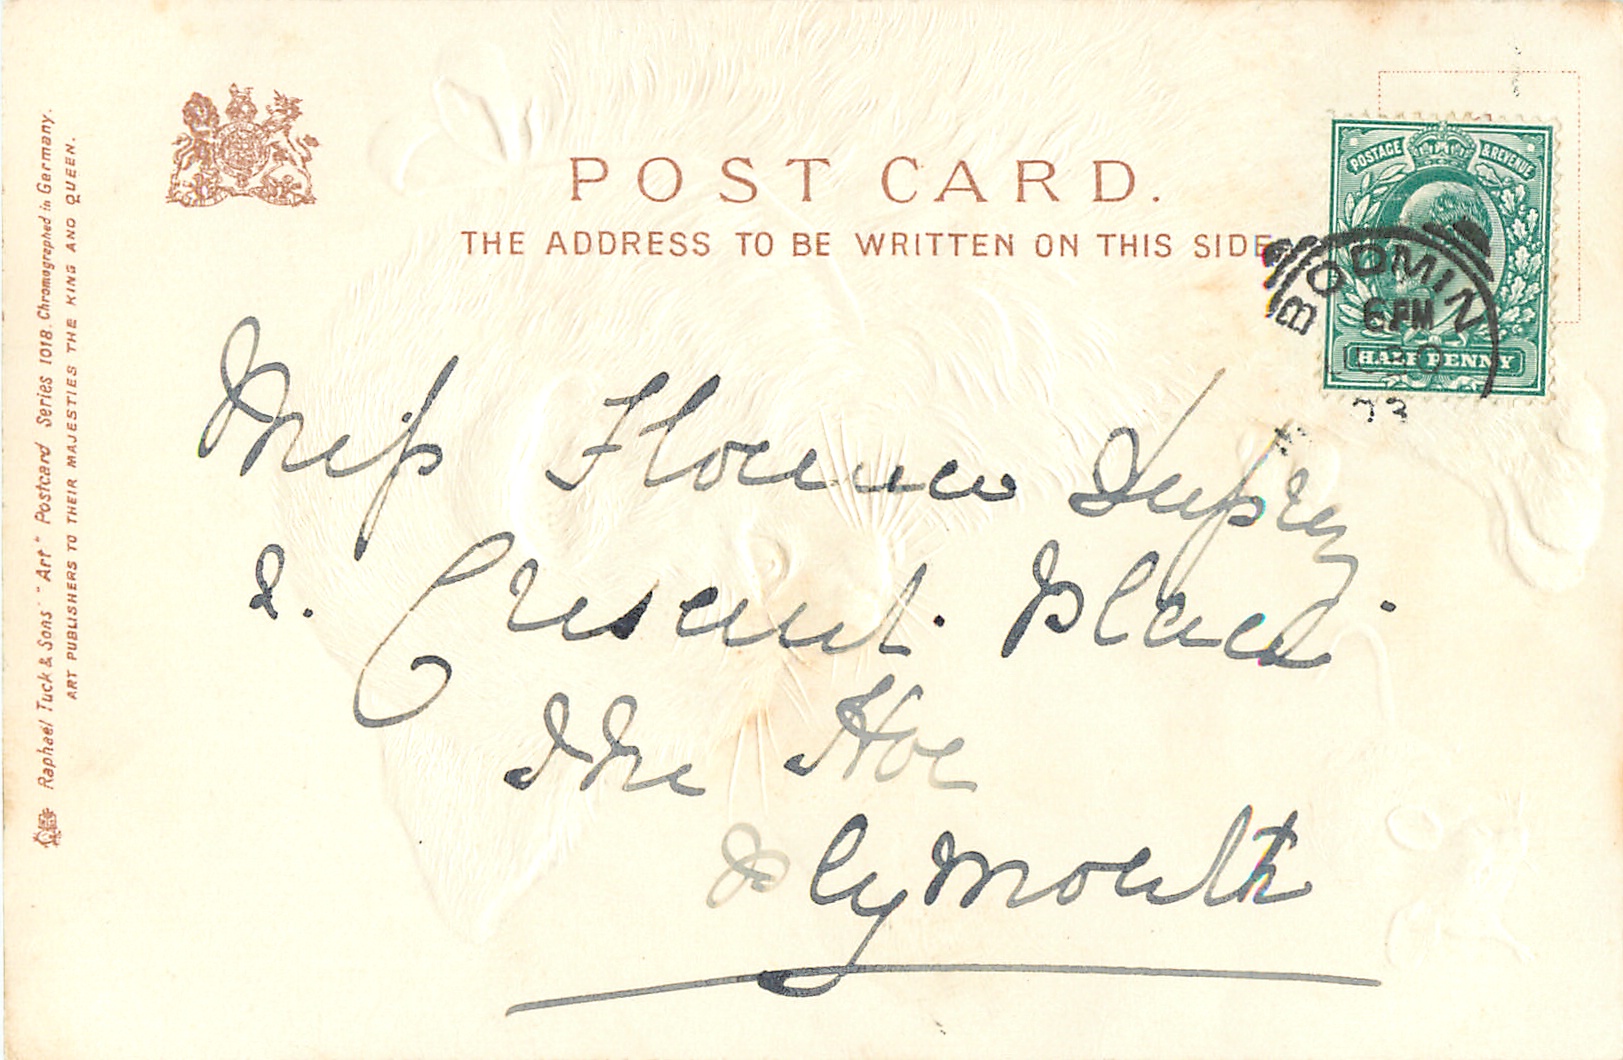 POST CARD.
THE ADDRESS TO BE WRITTEN ON THIS SIDE
POSTAGE & REVENUE
HALF PENNY
BODMIN
6 PM
Miss Florence
2. Crescent. Place
The Hoe
Plymouth
Raphael Tuck & Sons' "Art" Postcard Series 1018. Chromographed in Germany.
ART PUBLISHERS TO THEIR MAJESTIES THE KING AND QUEEN.